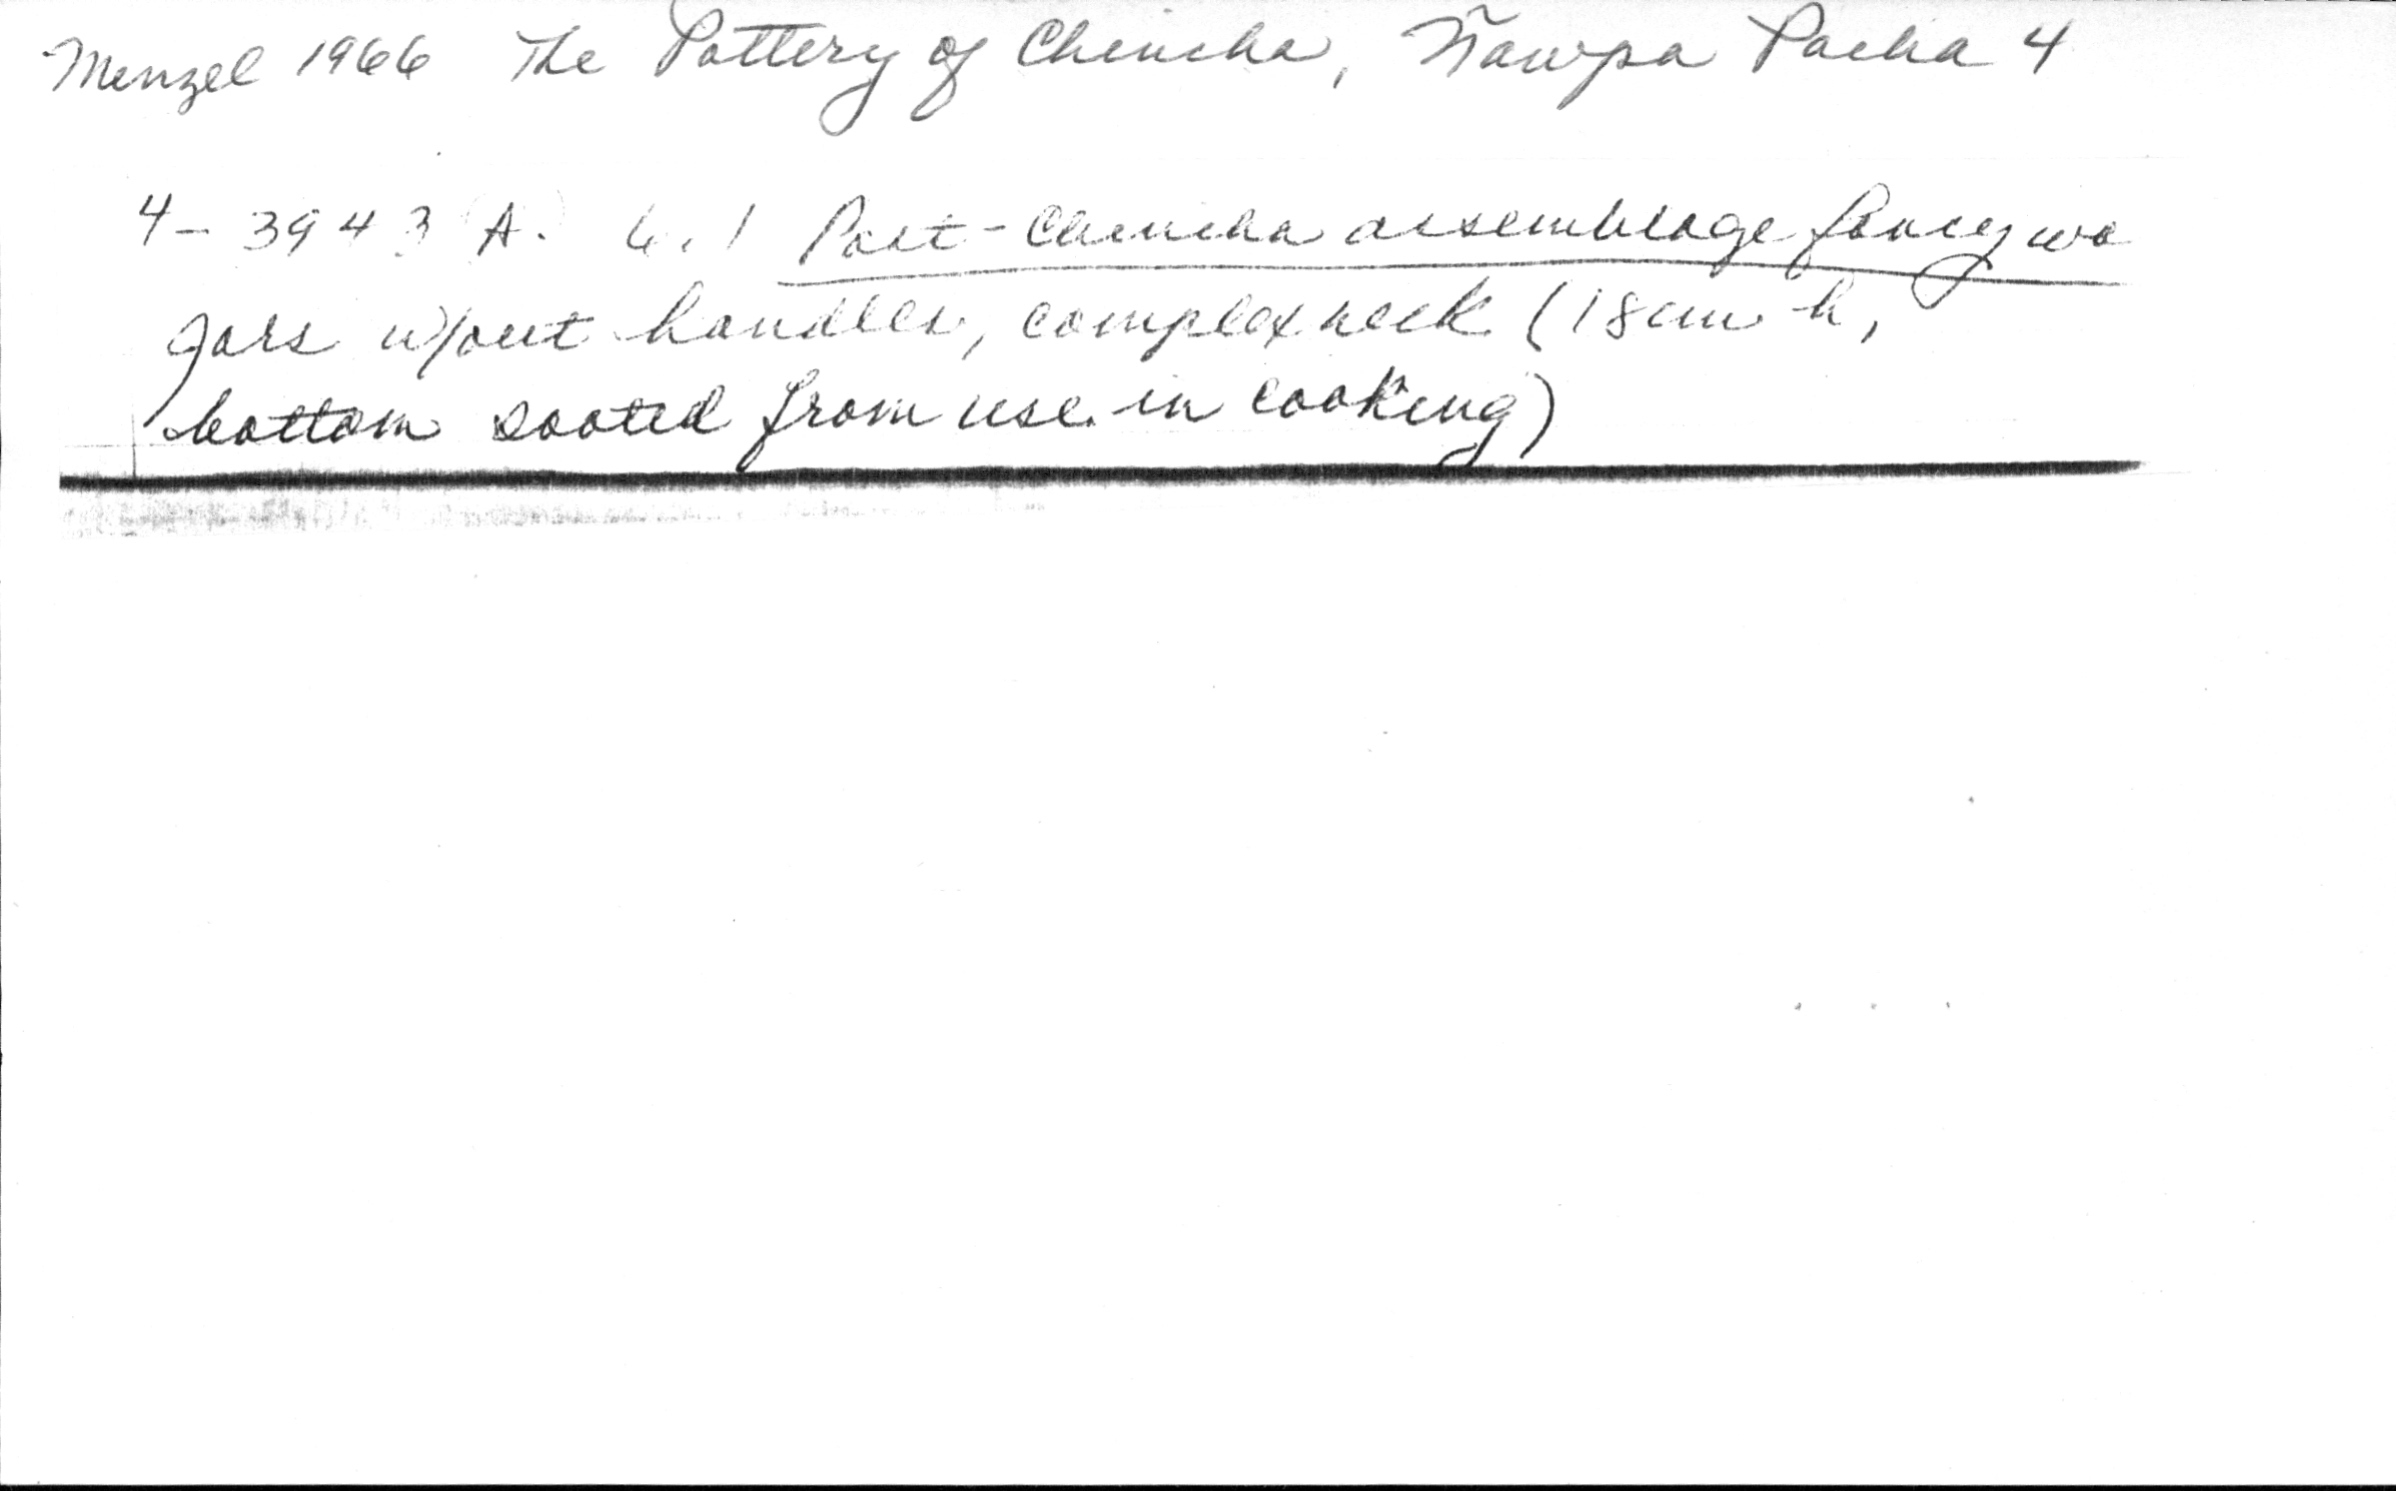 Menzel 1966 The Pottery of Chincha, Ñawpa Pacha 4
4-3943 A. 6.1 Post-Chincha assemblage fancy wa
Jars w/out handles, complex neck (18cm h,
bottom sooted from use in cooking)